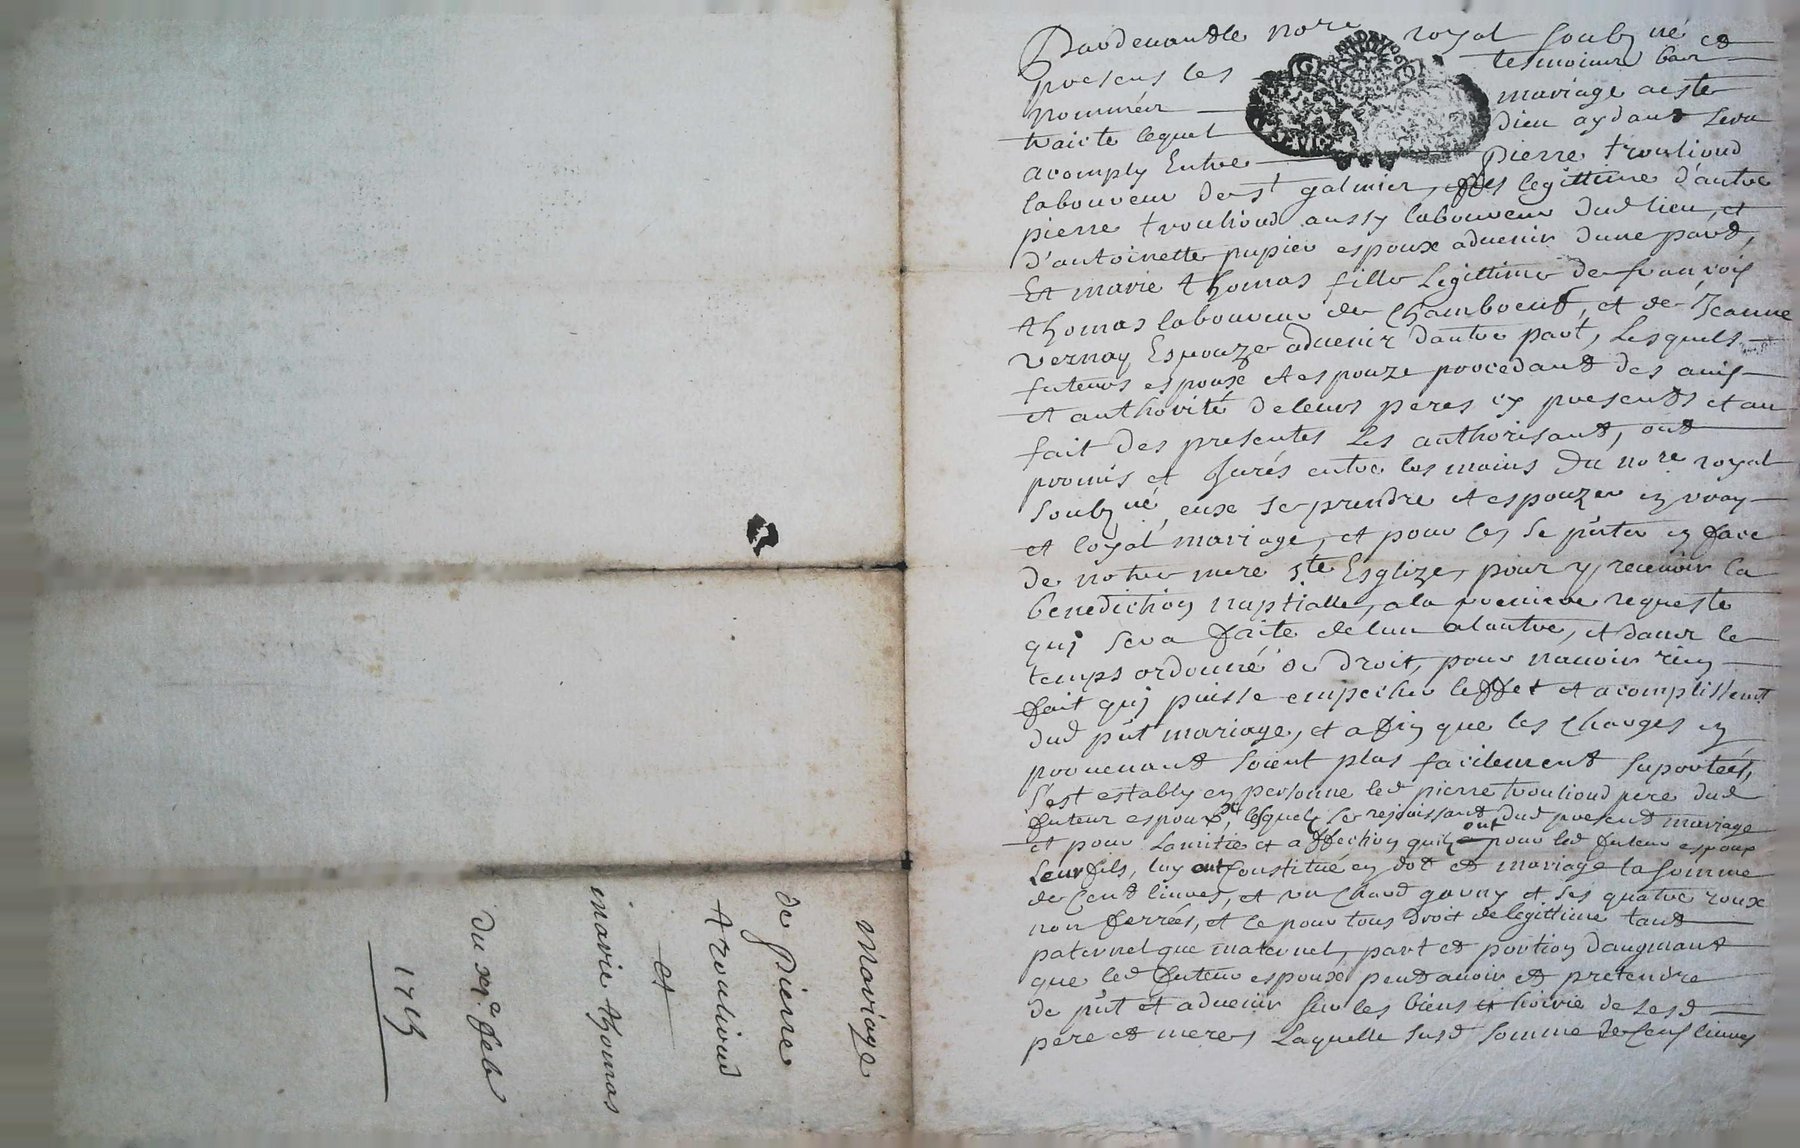 Pardevant le no.re royal soubz né et
presens les tesmoins bas
nommés mariage a esté
traicté lequel Dieu aydant sera
acomply Entre Pierre troulioud
laboureur de St galmier, fils legittime d'autre
pierre troulioud aussy laboureur dud lieu, et
d'antoinette pupier espoux advenir dune part,
Et marie thomas fille legittime de francois
thomas laboureur de Chamboeuf, et de Jeanne
vernay Espouze advenir dautre part, Lesquels
futeurs espoux et espouze procedant des avis
et authorité de leurs peres icy presents et au
fait des presentes les authorisant, ont
promis et Jurés entre les mains du no.re royal
soubz né, eux se prendre et espouzer en vray
et loyal mariage, et pour ces se pnter en face
de notre mere ste Esglize, pour y recevoir la
benediction nuptialle, a la premiere requeste
qui sera faite de lun a lautre, et dans le
temps ordonné de droit, pour navoir rien
fait qui puisse empecher leffet et acomplissemt
dud pnt mariage, et affin que les Charges en
provenant soient plus facilement suportées,
s'est estably en personne led pierre troulioud pere dud
futeur espoux, lesquels se rejoissant dud present mariage
et pour lamitie et affection quils ont pour led futeur espoux
leur fils, luy ont Constitué en dot et mariage la somme
de Cent livres, et un Chard garny et ses quatre roux
non ferrées, et ce pour tous droit de legittime tant
paternel que maternel, part et portion daugmant
que led futeur espoux peut avoir et pretendre
de pnt et advenir sur les biens et hoirie de sesd
pere et mere, Laquelle susd somme de Cent livres
mariage
de Pierre
trouliоud
et
marie thomas
du xi.e feb
1715